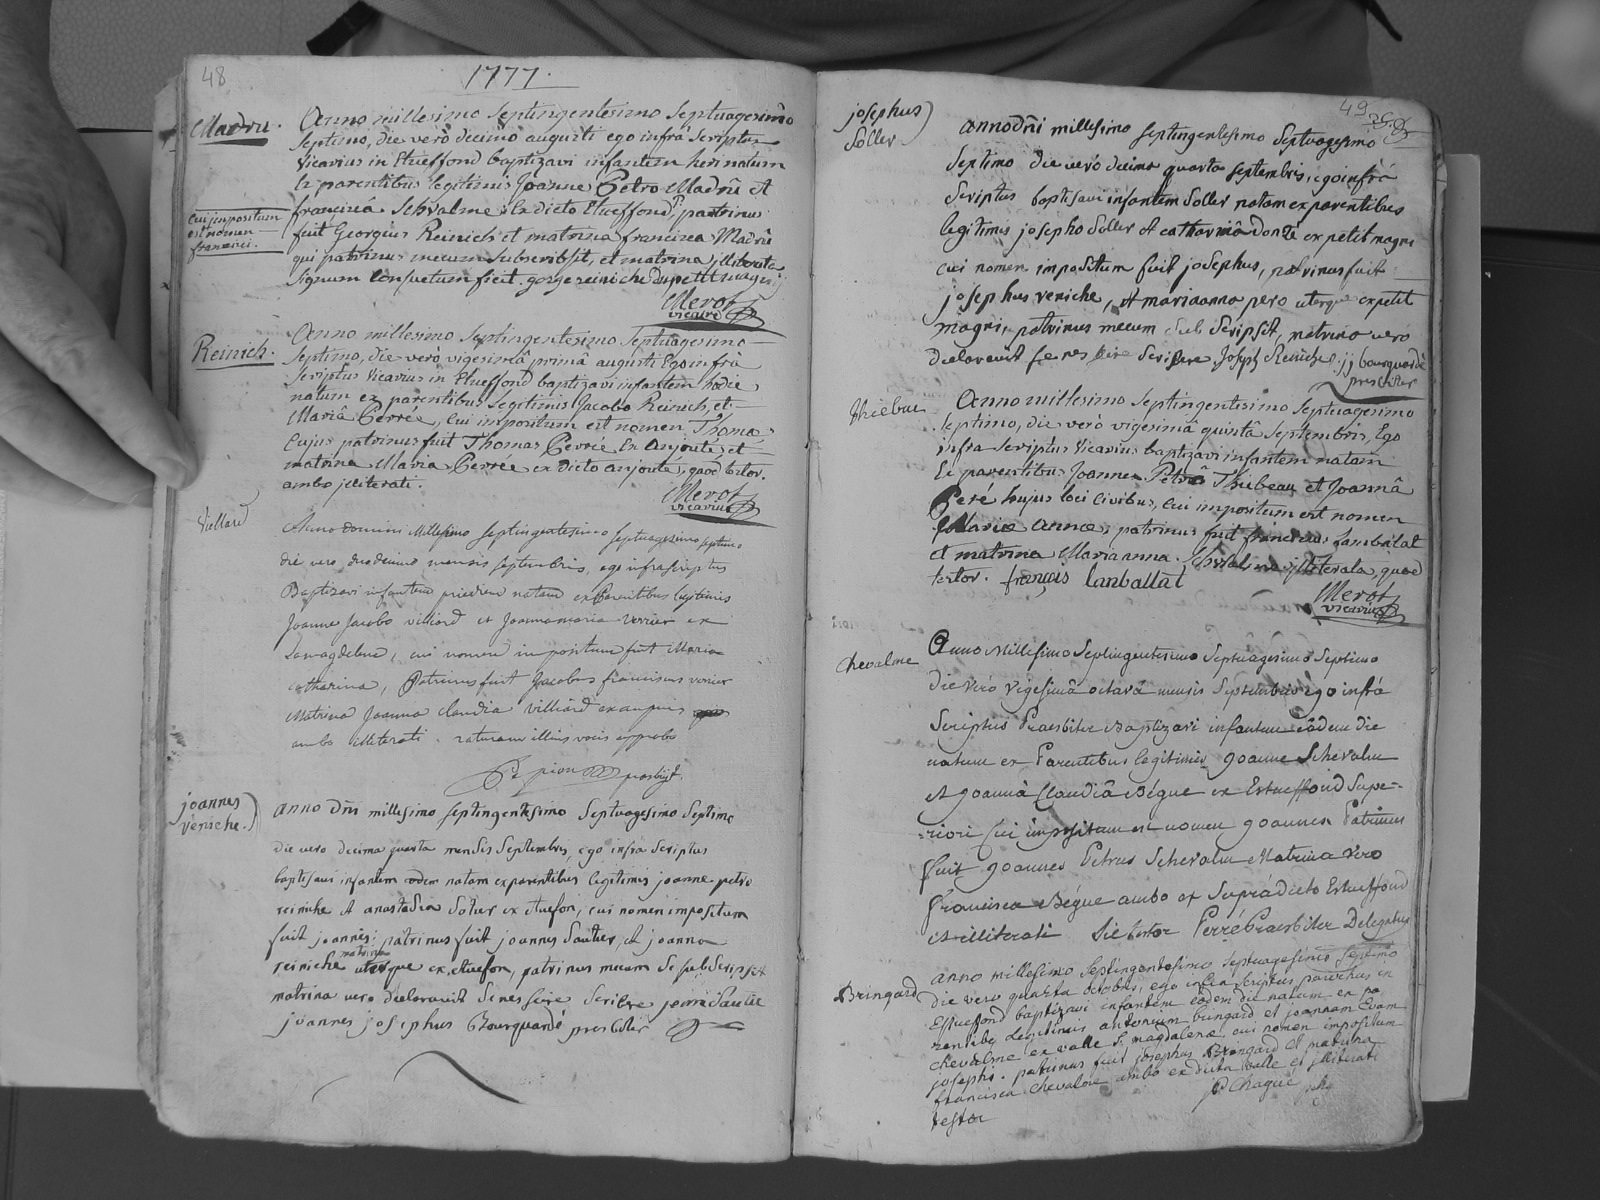 48
1777.
Madru.
Anno millesimo Septingentesimo Septuagesimo
Septimo, die verò decimo augusti ego infrà Scriptus
Vicarius in Etueffond baptizavi infantem heri natum
Ex parentibus legitimis Joanne Petro Madru et
franciscâ Schvalme Ex dicto Etueffond, patrinus
cui impositum
est nomen
francisci.
fuit Georgius Reinich et matrina francisca Madru
qui patrinus mecum Subscribsit, et matrina jlliterata
signum Consuetum fecit. gorge reiniche du petit magny
Merot
vicaire
Reinich.
Anno millesimo Septingentesimo Septuagesimo
Septimo, die verò vigesimâ primâ augusti Ego infrà
Scriptus Vicarius in Etueffond baptizavi infantem hodie
natum ex parentibus legitimis Jacobo Reinich, et
Mariâ Perrée, Cui impositum est nomen Thoma
Cujus patrinus fuit Thomas Perrée Ex Anjoute, et
matrina Maria Perrée ex dicto anjoute, quod testor.
ambo jlliterati.
Merot
vicarius
Viellard
Anno domini Millesimo Septingentesimo Septuagesimo septimo
die vero duodecimo mensis septembris, ego infrascriptus
Baptizavi infantem pridem natam ex Parentibus legitimis
Joanne Jacobo villiard et Joannamaria verrier ex
Lamagdelene, cui nomen impositum fuit Maria
catharina, Patrinus fuit Jacobus franciscus verrier
Matrina Joanna Claudia Villiard ex
ambo illiterati. raturam illius vocis approbo
pion presbyt.
joannes
reniche.
anno Dñi millesimo septingentesimo Septuagesimo Septimo
die vero decima quarta mensis Septembris, ego infra Scriptus
baptisavi infantem eodem natam ex parentibus legitimis joanne petro
reiniche et anastasia Soller ex etuefon, cui nomen impositum
fuit joannes: patrinus fuit joannes Sautier, et joanna
matrina
reiniche uterque ex etuefon, patrinus mecum Se subscripsit
matrina vero declaravit Se nescire Scribere
joannes josephus Bourquardé presbiter
49
josephus
Soller
anno dñi millesimo Septingentesimo Septuagesimo
Septimo die vero decima quarta Septembris, ego infrà
Scriptus baptisavi infantem Soller natam ex parentibus
legitimis josepho Soller et catharinâ donzé ex petit magni
cui nomen impositum fuit josephus, patrinus fuit
josephus reniche, et marianna pero uterque ex petit
magni, patrinus mecum Sub Scripsit, matrina vero
declaravit Scribere, Joseph Reiniche. jj bourquardé
presbiter
Thiebau
Anno millesimo Septingentesimo Septuagesimo
Septimo, die verò vigesimâ quintâ Septembris, Ego
infra Scriptus Vicarius baptizavi infantem natam
Ex parentibus Joanne Petro Thiebeau et Joannâ
Peré hujus loci Civibus, Cui impositum est nomen
Mariæ Annæ, patrinus fuit franciscus Lanbalat
et matrina Marianna. jlliterata, quod
testor. françois lanballat
Merot
vicarius
Chevalme
Anno Millesimo Septingentesimo Septuagesimo Septimo
Die Verò Vigesimâ octavâ mensis Septembris ego infrà
Scriptus Praesbiter Baptizavi infantem eâdem die
natum ex Parentibus legitimis Joanne Schevalm
et Joannâ Claudiâ Bégue ex Estueffond Supe-
riori Cui impositum est nomen Joannes Patrinus
fuit Joannes Petrus Schevalm Matrina Vero
francisca Bégue ambo ex Suprà dicto Estueffond
et illiterati Sic testor Perré Praesbiter Delegatus
Bringard
anno millesimo Septingentesimo Septuagesimo Septimo
die vero quarta octobris, ego infra Scriptus, parochus in
Estueffond baptizavi infantem eadem die natum ex pa
rentibus legitimis antonium bringard et joannam Evam
chevalme ex valle S. magdalenæ. cui nomen impositum
josephi. patrinus fuit josephus Bringard et matrina
francisca chevalme ambo ex dicta valle et jlliterati
testor
P Chaque